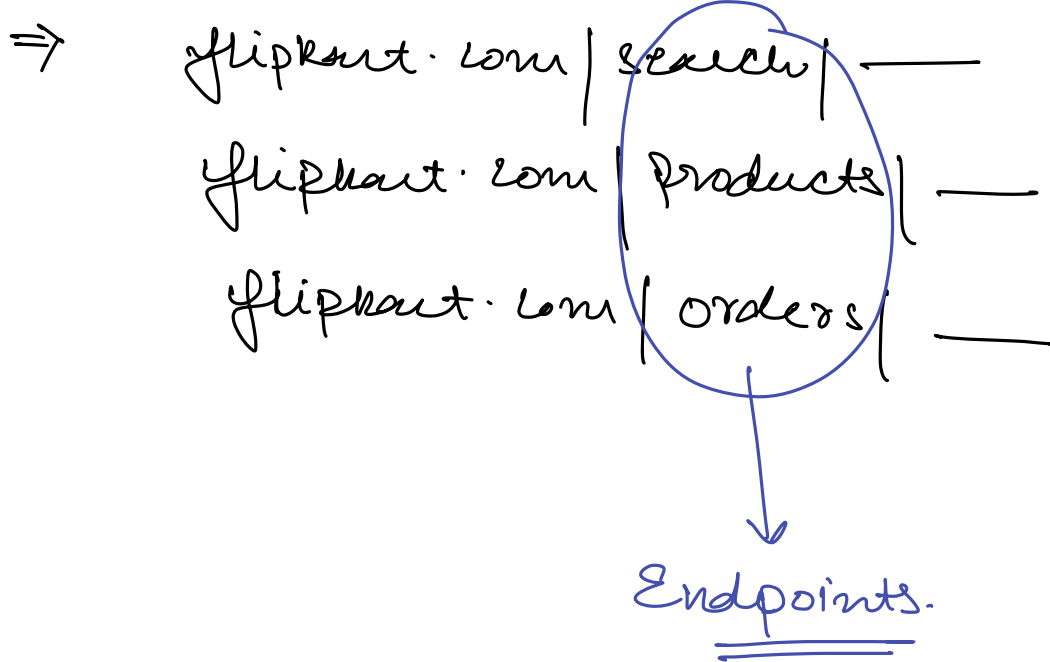 ⇒ flipkart.com/search/ —
flipkart.com/Products/ —
flipkart.com/orders/ —
Endpoints.